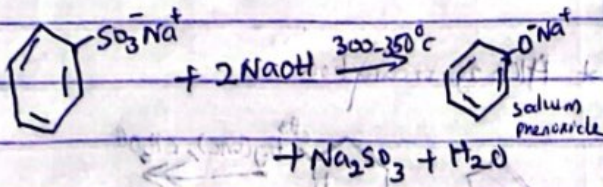 SO₃⁻Na⁺
+ 2NaOH 300-350°C → O⁻Na⁺
sodium
phenoxide
+ Na₂SO₃ + H₂O